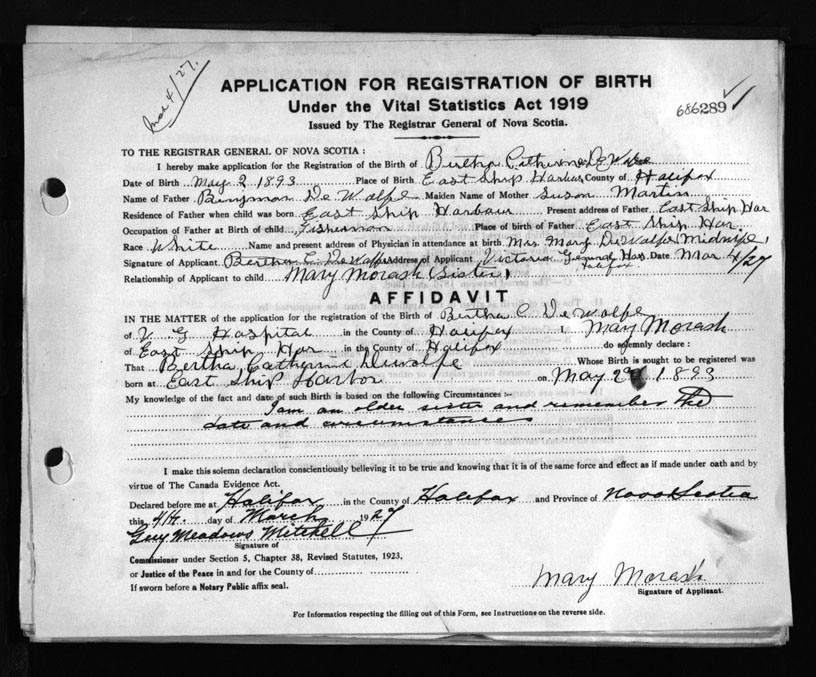 mar 4/27.
APPLICATION FOR REGISTRATION OF BIRTH
Under the Vital Statistics Act 1919
Issued by The Registrar General of Nova Scotia.
686289
TO THE REGISTRAR GENERAL OF NOVA SCOTIA:
I hereby make application for the Registration of the Birth of Bertha Catherine De Wolfe
Date of Birth May 2 1893 Place of Birth East Ship Harbur County of Halifax
Name of Father Benjman De Wolfe Maiden Name of Mother Susan Martin
Residence of Father when child was born East Ship Harbour Present address of Father East Ship Har
Occupation of Father at Birth of child Fisherman Place of birth of Father East Ship Har.
Race White Name and present address of Physician in attendance at birth Mrs. Mary DeWolfe (Midwife)
Signature of Applicant Bertha C. DeWolfe Address of Applicant Victoria General Hos. Halifax Date Mar 4/27
Relationship of Applicant to child Mary Morash (Sister)
AFFIDAVIT
IN THE MATTER of the application for the registration of the Birth of Bertha C. De Wolfe
of V. G Hospital in the County of Halifax I, Mary Morash
of East Ship Har in the County of Halifax do solemnly declare:
That Bertha Catherine Dewolfe Whose Birth is sought to be registered was
born at East Ship Harbor on May 2nd 1893
My knowledge of the fact and date of such Birth is based on the following Circumstances :-
I am an older sister and remember the
date and circumstances
I make this solemn declaration conscientiously believing it to be true and knowing that it is of the same force and effect as if made under oath and by
virtue of The Canada Evidence Act.
Declared before me at Halifax in the County of Halifax and Province of Nova Scotia
this 4th. day of March 1927
Guy Meadows Mitchell
Signature of
Commissioner under Section 5, Chapter 38, Revised Statutes, 1923,
or Justice of the Peace in and for the County of
If sworn before a Notary Public affix seal.
Mary Morash
Signature of Applicant.
For Information respecting the filling out of this Form, see Instructions on the reverse side.